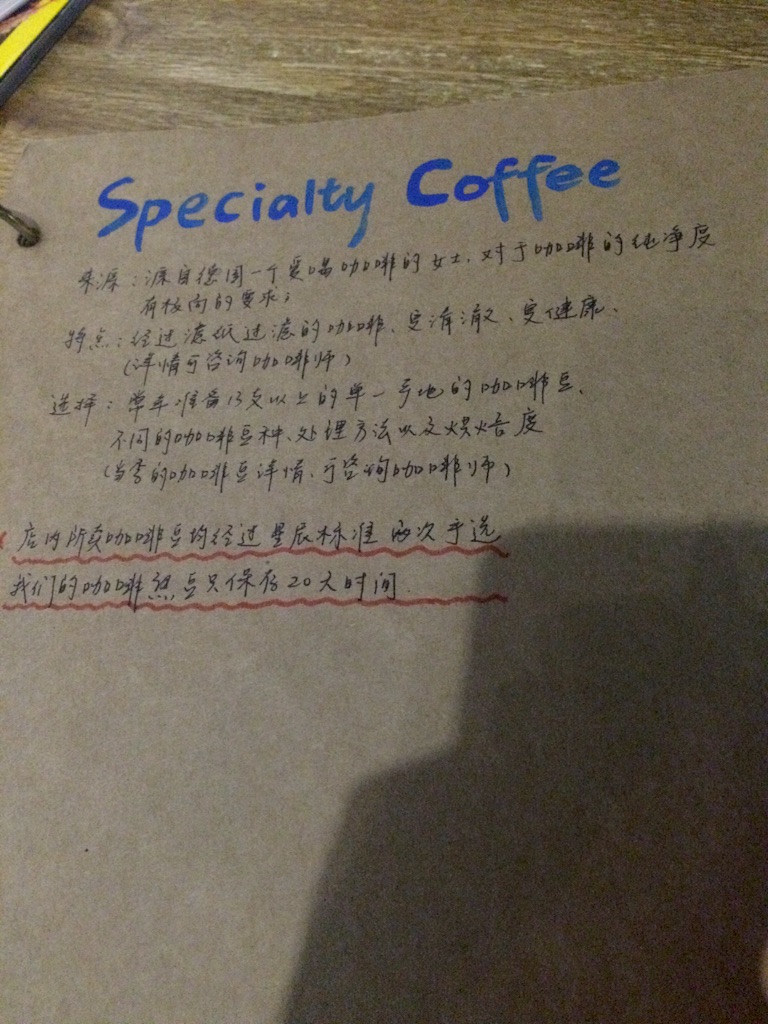 Specialty Coffee
来源：源自德国一个爱喝咖啡的女士，对于咖啡的纯净度
有极高的要求；
特点：经过滤纸过滤的咖啡、更清澈、更健康、
(详情可咨询咖啡师)
选择：常年准备13支以上的单一产地的咖啡豆、
不同的咖啡豆种、处理方法以及烘焙度
(当季的咖啡豆详情、可咨询咖啡师)
店内所卖咖啡豆均经过星辰标准两次手选
我们的咖啡熟豆只保存20天时间.